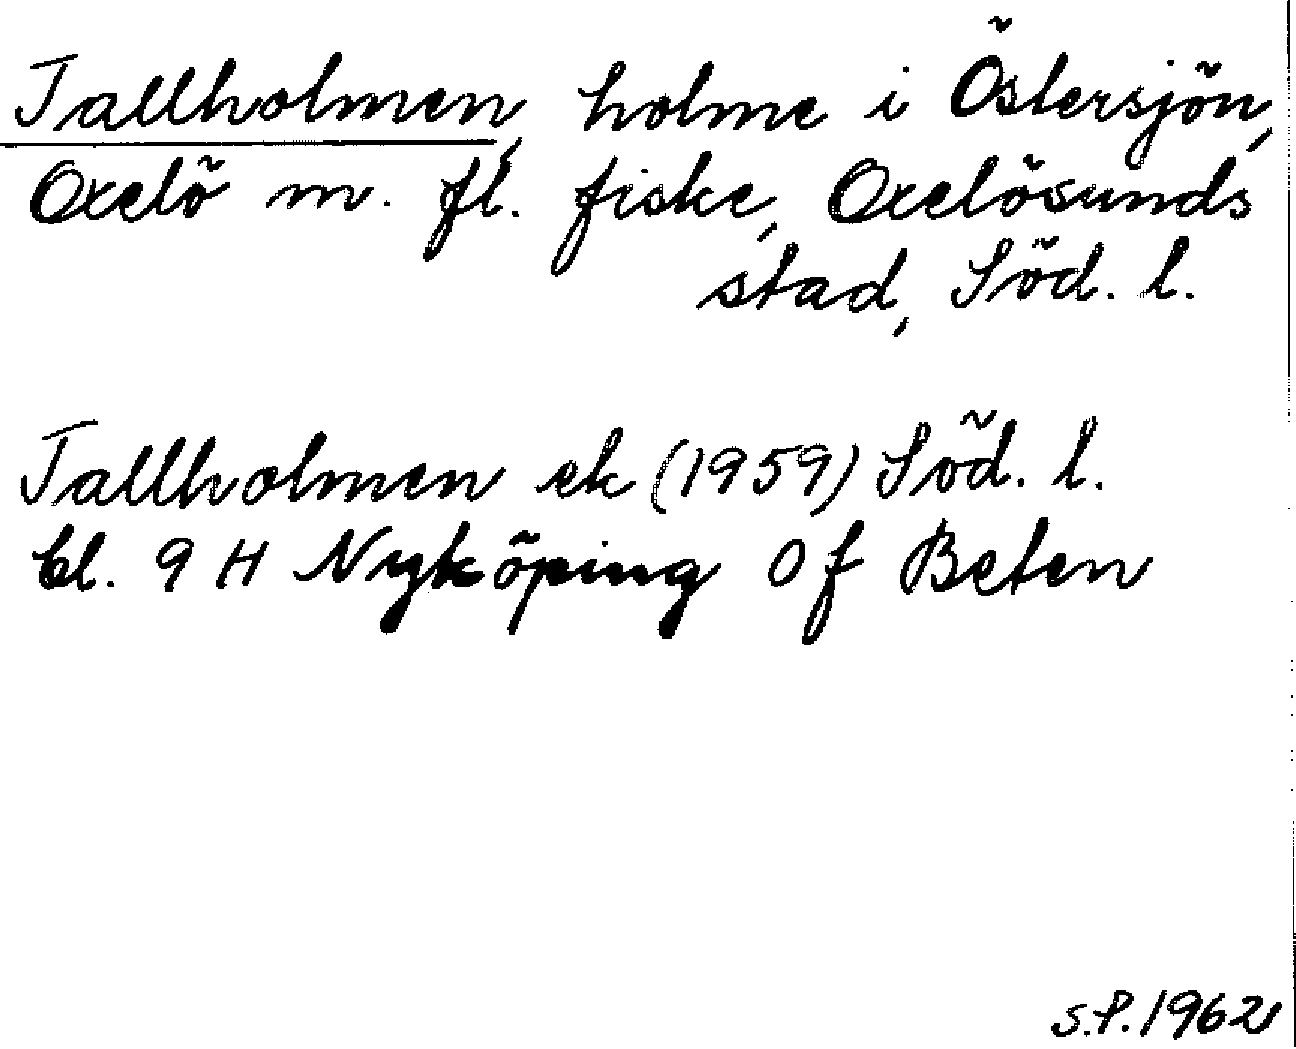 Tallholmen, holme i Östersjön,
Oxelö m. fl. fiske, Oxelösunds
stad, Söd. l.
Tallholmen ek (1959) Söd. l.
bl. 9 H Nyköping Of Beten
S.P. 1962